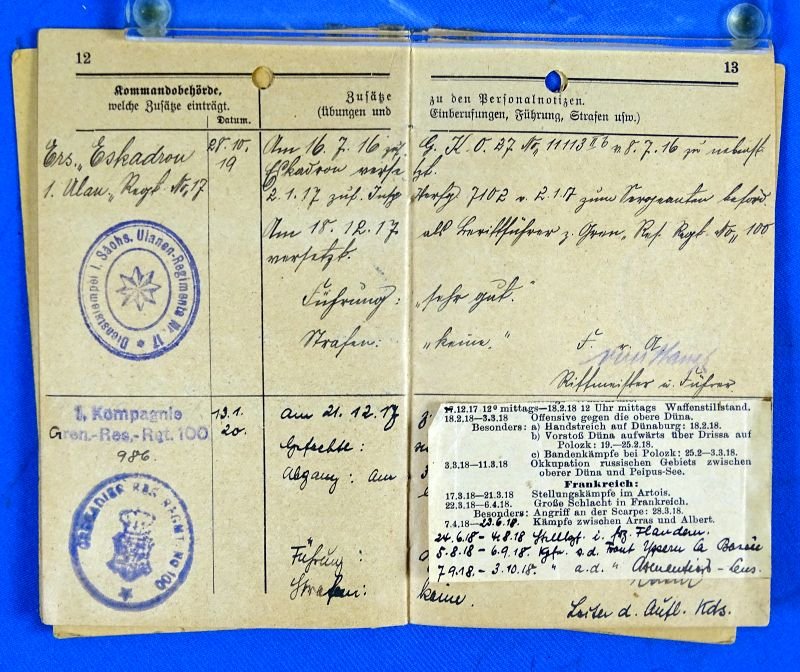 12
Kommandobehörde,
welche Zusätze einträgt.
Datum.
Zusätze
(Übungen und
Ers. Eskadron
1. Ulan. Regt. No. 17
28.10.
19
Am 16. 7. 16 zu
Eskadron verse
2.1.17 zuf.
Am 18. 12. 17
versetzt.
Führung:
Strafen:
Dienststempel 1. Sächs. Ulanen-Regiments Nr. 17 *
1. Kompagnie
Gren.-Res.-Rgt. 100
986.
13.1.
20.
Am 21. 12. 17
Gefechte:
Abgang: Am
Führung:
Strafen:
GRENADIER RES REGMT NO 100
13
zu den Personalnotizen.
Einberufungen, Führung, Strafen usw.)
G. K. O. 27 No. 11113 II b v. 8. 7. 16 zu
zt.
Verfg. 7102 v. 2.1.17 zum Sergeanten beförd.
als Berittführer z. Gren. Res. Regt. No. 100
"sehr gut."
"keine." F. v. A.
Rittmeister u. Führer
.12.17 12⁰ mittags—18.2.18 12 Uhr mittags Waffenstillstand.
18.2.18—3.3.18 Offensive gegen die obere Düna.
Besonders: a) Handstreich auf Dünaburg: 18.2.18.
b) Vorstoß Düna aufwärts über Drissa auf
Polozk: 19.—25.2.18.
c) Bandenkämpfe bei Polozk: 25.2—3.3.18.
3.3.18—11.3.18 Okkupation russischen Gebiets zwischen
oberer Düna und Peipus-See.
Frankreich:
17.3.18—21.3.18 Stellungskämpfe im Artois.
22.3.18—6.4.18. Große Schlacht in Frankreich.
Besonders: Angriff an der Scarpe: 28.3.18.
7.4.18—23.6.18. Kämpfe zwischen Arras und Albert.
24.6.18 - 4.8.18 Stellgk. i. frz. Flandern.
5.8.18 - 6.9.18. a. d. Front Ypern La Bassée
7.9.18. - 3.10.18. " a. d. " Armentières - Lens.
keine.
Leiter d. Aufl. Kds.